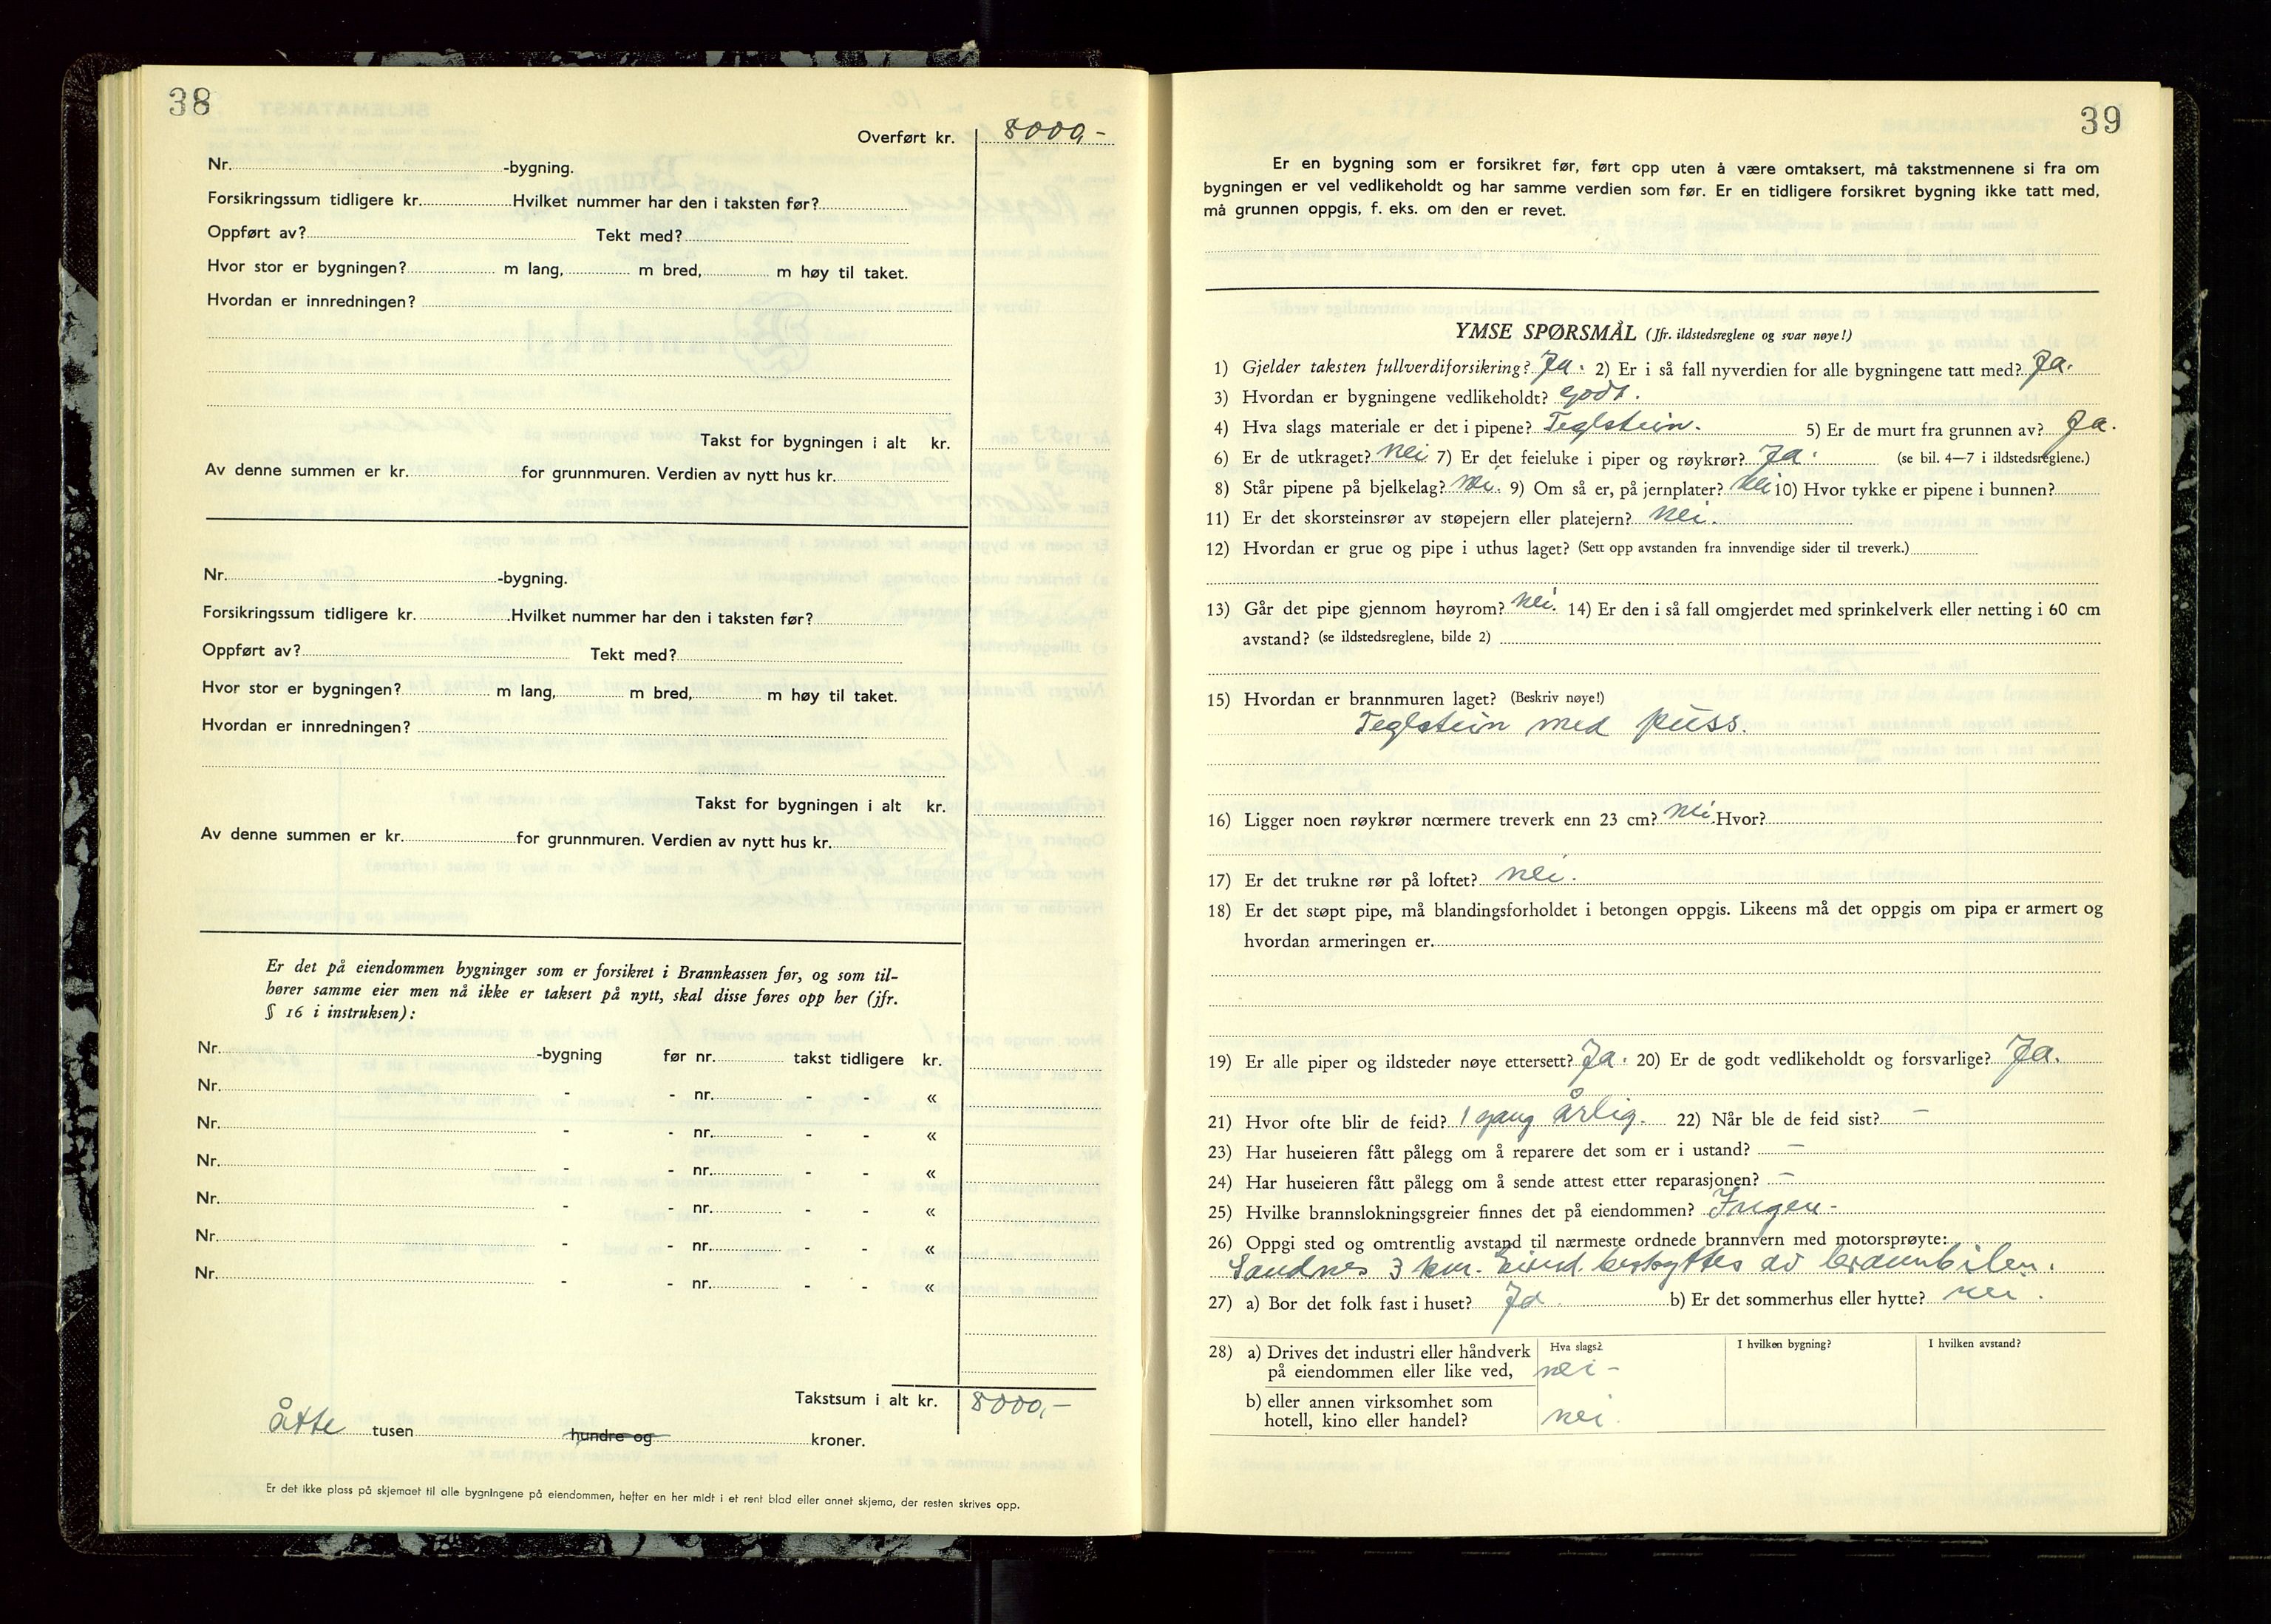 38
Overført kr. 8000,-
Nr. -bygning.
Forsikringssum tidligere kr. Hvilket nummer har den i taksten før?
Oppført av? Tekt med?
Hvor stor er bygningen? m lang, m bred, m høy til taket.
Hvordan er innredningen?
Takst for bygningen i alt kr.
Av denne summen er kr. for grunnmuren. Verdien av nytt hus kr.
Nr. -bygning.
Forsikringssum tidligere kr. Hvilket nummer har den i taksten før?
Oppført av? Tekt med?
Hvor stor er bygningen? m lang, m bred, m høy til taket.
Hvordan er innredningen?
Takst for bygningen i alt kr.
Av denne summen er kr. for grunnmuren. Verdien av nytt hus kr.
Er det på eiendommen bygninger som er forsikret i Brannkassen før, og som til-
hører samme eier men nå ikke er taksert på nytt, skal disse føres opp her (jfr.
§ 16 i instruksen):
Nr. -bygning før nr. takst tidligere kr.
Nr. - - nr. - - «
Nr. - - nr. - - «
Nr. - - nr. - - «
Nr. - - nr. - - «
Nr. - - nr. - - «
Nr. - - nr. - - «
Takstsum i alt kr. 8000,-
åtte tusen hundre og kroner.
Er det ikke plass på skjemaet til alle bygningene på eiendommen, hefter en her midt i et rent blad eller annet skjema, der resten skrives opp.
39
Er en bygning som er forsikret før, ført opp uten å være omtaksert, må takstmennene si fra om
bygningen er vel vedlikeholdt og har samme verdien som før. Er en tidligere forsikret bygning ikke tatt med,
må grunnen oppgis, f. eks. om den er revet.
YMSE SPØRSMÅL (Jfr. ildstedsreglene og svar nøye!)
1) Gjelder taksten fullverdiforsikring? Ja. 2) Er i så fall nyverdien for alle bygningene tatt med? Ja.
3) Hvordan er bygningene vedlikeholdt? godt.
4) Hva slags materiale er det i pipene? Teglstein. 5) Er de murt fra grunnen av? Ja.
6) Er de utkraget? nei 7) Er det feieluke i piper og røykrør? Ja. (se bil. 4—7 i ildstedsreglene.)
8) Står pipene på bjelkelag? nei. 9) Om så er, på jernplater? nei 10) Hvor tykke er pipene i bunnen?
11) Er det skorsteinsrør av støpejern eller platejern? nei.
12) Hvordan er grue og pipe i uthus laget? (Sett opp avstanden fra innvendige sider til treverk.)
13) Går det pipe gjennom høyrom? nei. 14) Er den i så fall omgjerdet med sprinkelverk eller netting i 60 cm
avstand? (se ildstedsreglene, bilde 2)
15) Hvordan er brannmuren laget? (Beskriv nøye!)
Teglstein med puss.
16) Ligger noen røykrør nærmere treverk enn 23 cm? nei. Hvor?
17) Er det trukne rør på loftet? nei.
18) Er det støpt pipe, må blandingsforholdet i betongen oppgis. Likeens må det oppgis om pipa er armert og
hvordan armeringen er.
19) Er alle piper og ildsteder nøye ettersett? Ja. 20) Er de godt vedlikeholdt og forsvarlige? Ja.
21) Hvor ofte blir de feid? 1 gang årlig. 22) Når ble de feid sist? -
23) Har huseieren fått pålegg om å reparere det som er i ustand? -
24) Har huseieren fått pålegg om å sende attest etter reparasjonen? -
25) Hvilke brannslokningsgreier finnes det på eiendommen? Ingen -
26) Oppgi sted og omtrentlig avstand til nærmeste ordnede brannvern med motorsprøyte:
Sandnes 3 km. Eiend. beskyttes av brannbilen.
27) a) Bor det folk fast i huset? Ja b) Er det sommerhus eller hytte? nei.
28) a) Drives det industri eller håndverk Hva slags? I hvilken bygning? I hvilken avstand?
på eiendommen eller like ved, nei -
b) eller annen virksomhet som
hotell, kino eller handel? nei.